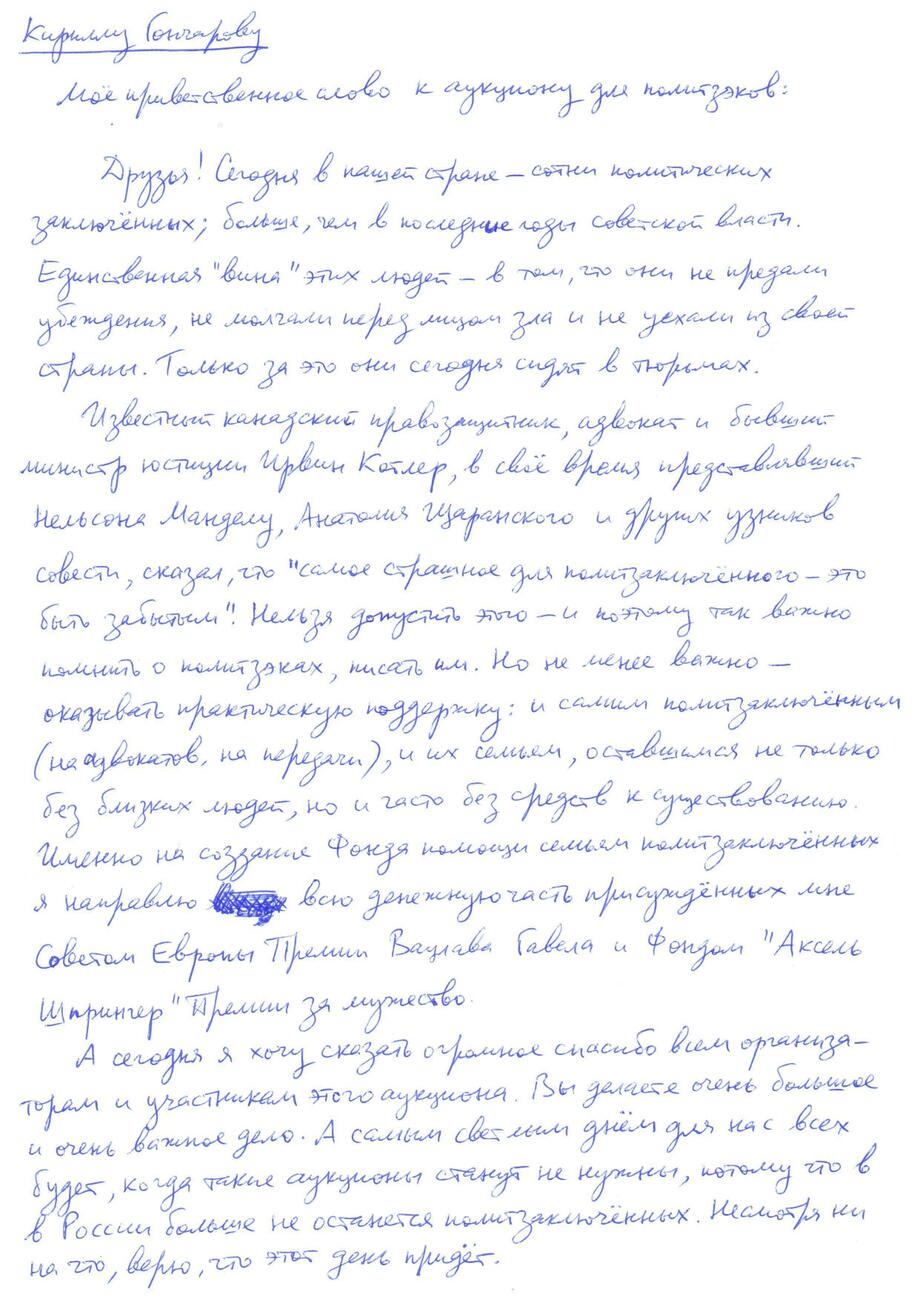 Кириллу Гончарову
Моё приветственное слово к аукциону для политзэков:
Друзья! Сегодня в нашей стране – сотни политических
заключённых; больше, чем в последние годы советской власти.
Единственная "вина" этих людей – в том, что они не предали
убеждения, не молчали перед лицом зла и не уехали из своей
страны. Только за это они сегодня сидят в тюрьмах.
Известный канадский правозащитник, адвокат и бывший
министр юстиции Ирвин Котлер, в своё время представлявший
Нельсона Манделу, Анатолия Щаранского и других узников
совести, сказал, что "самое страшное для политзаключённого – это
быть забытым". Нельзя допустить этого – и поэтому так важно
помнить о политзэках, писать им. Но не менее важно –
оказывать практическую поддержку: и самим политзаключённым
(на адвокатов, на передачи), и их семьям, оставшимся не только
без близких людей, но и часто без средств к существованию.
Именно на создание Фонда помощи семьям политзаключённых
я направлю всю денежную часть присуждённых мне
Советом Европы Премии Вацлава Гавела и Фондом "Аксель
Шпрингер" Премии за мужество.
А сегодня я хочу сказать огромное спасибо всем организа-
торам и участникам этого аукциона. Вы делаете очень большое
и очень важное дело. А самым светлым днём для нас всех
будет, когда такие аукционы станут не нужны, потому что в
в России больше не останется политзаключённых. Несмотря ни
на что, верю, что этот день придёт.